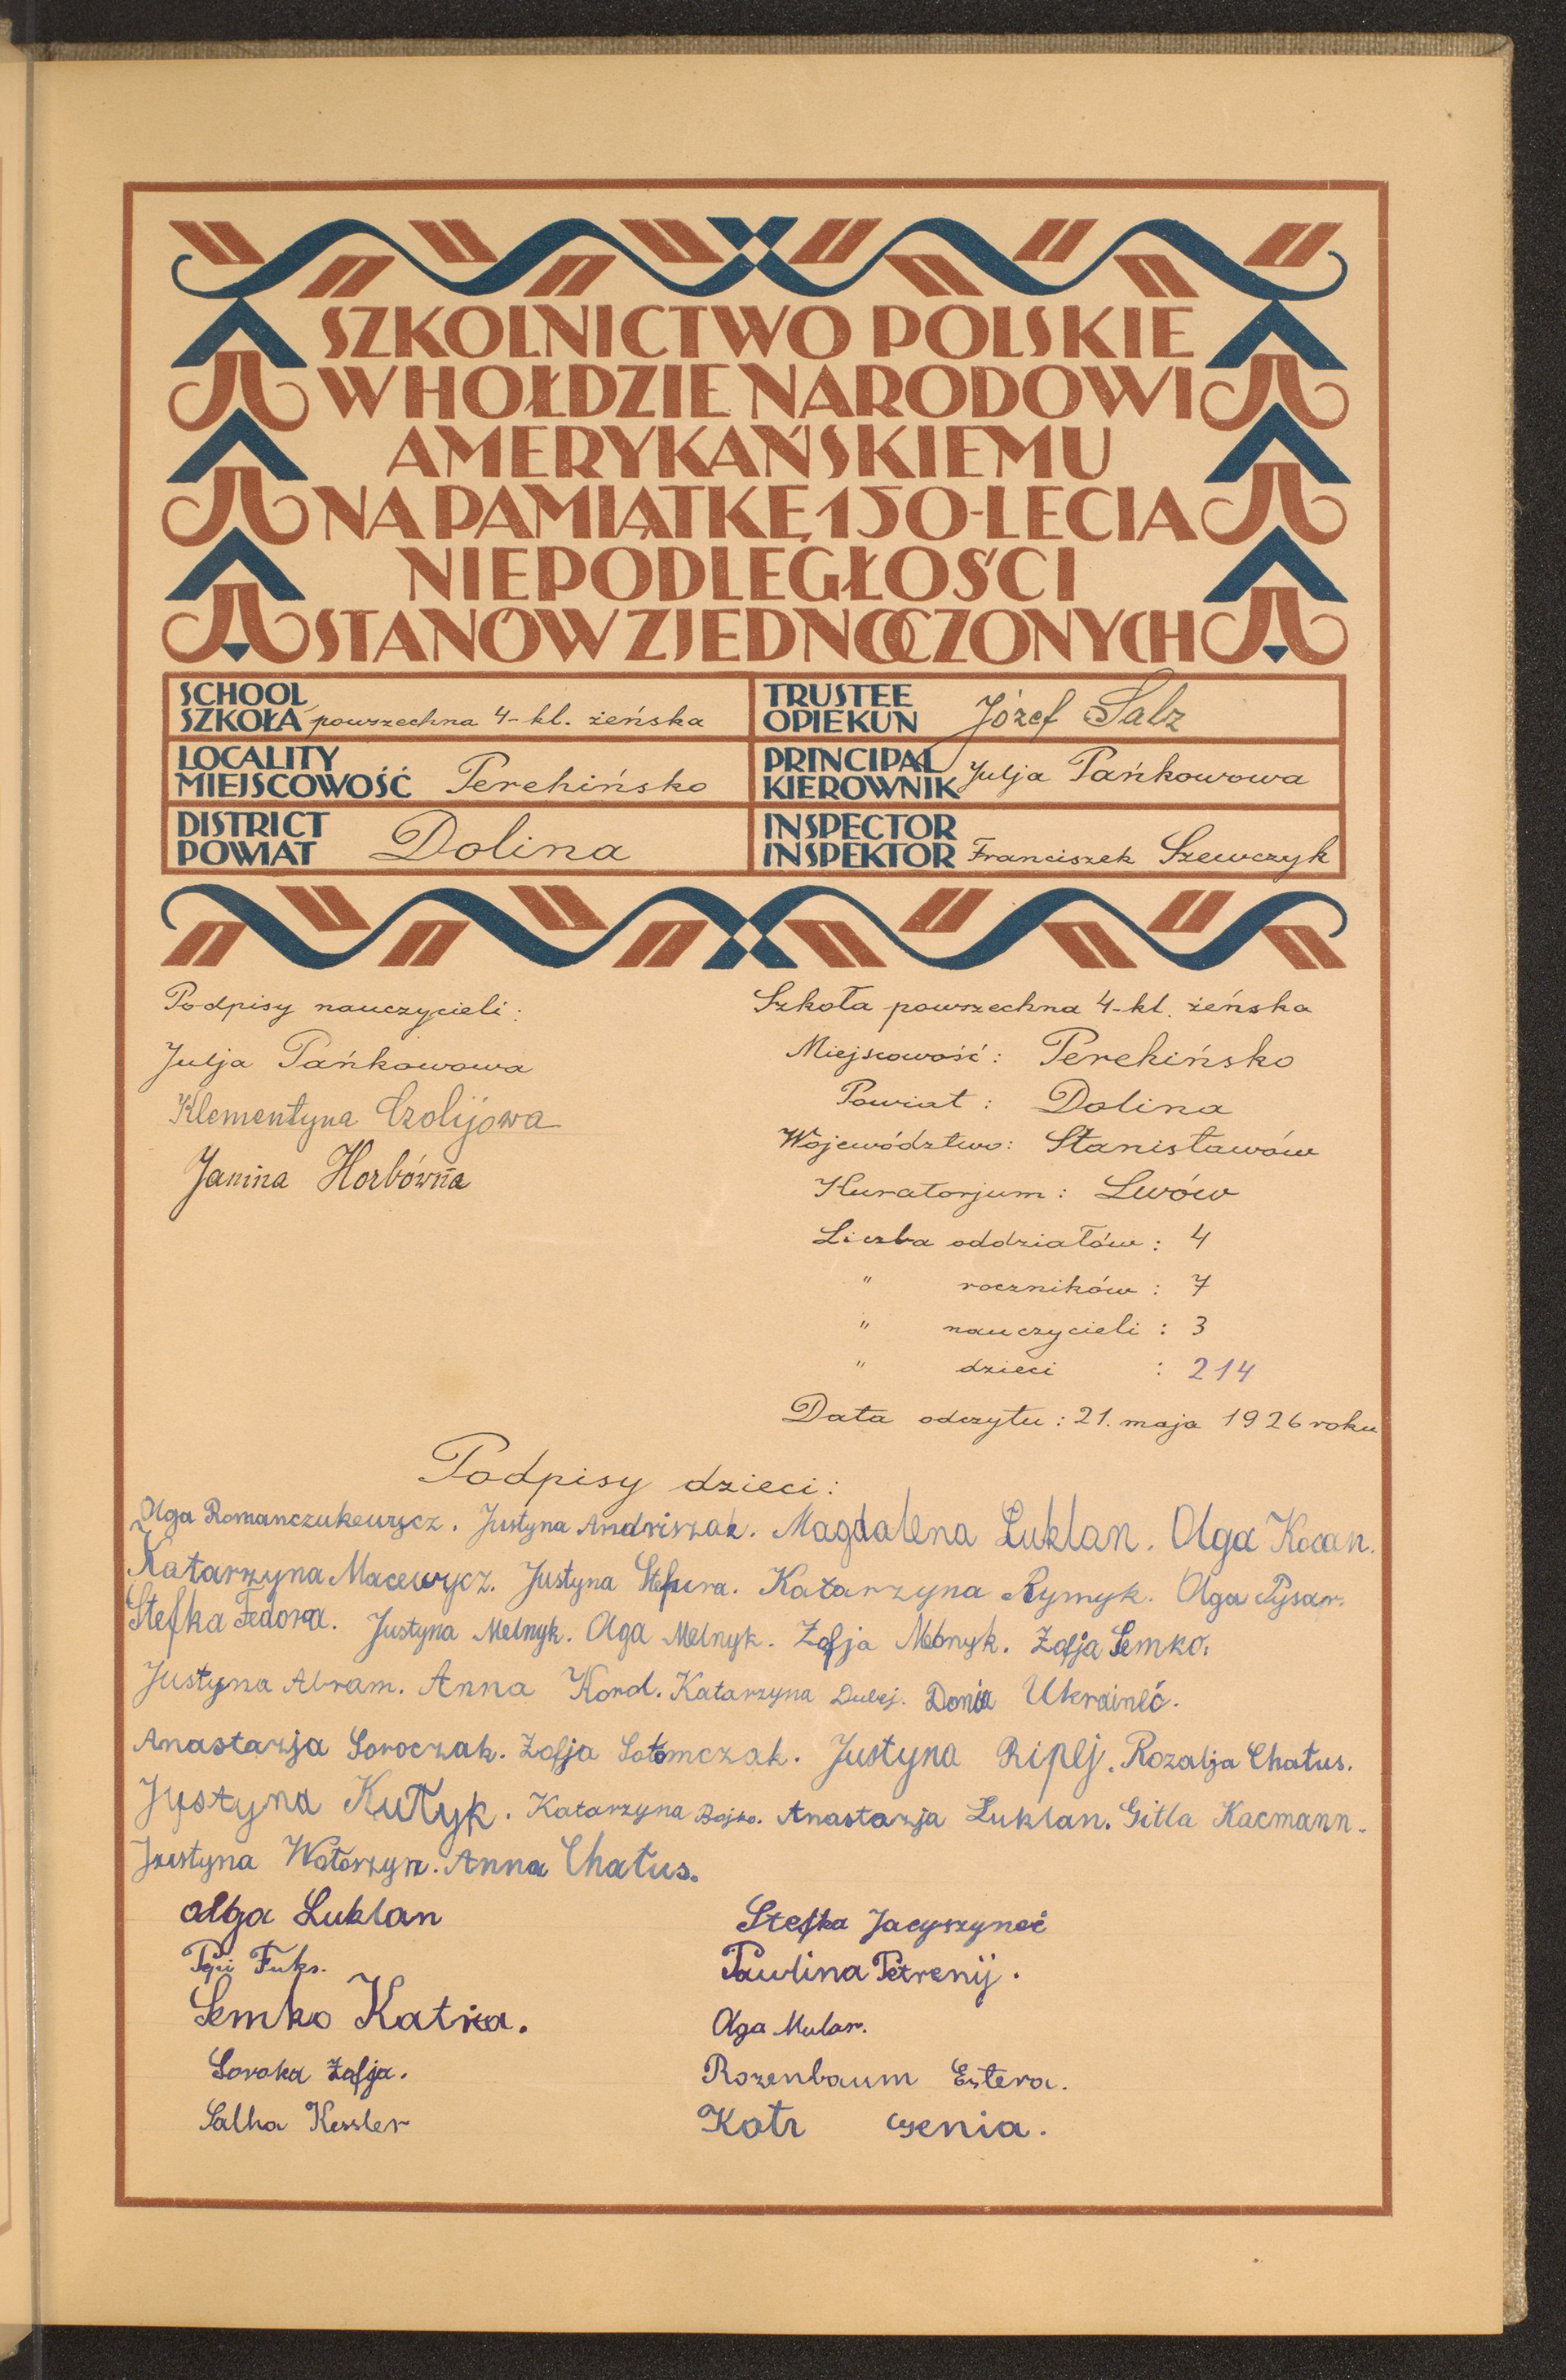 SZKOLNICTWO POLSKIE
W HOŁDZIE NARODOWI
AMERYKAŃSKIEMU
NA PAMIĄTKĘ 150-LECIA
NIEPODLEGŁOŚCI
STANÓW ZJEDNOCZONYCH
SCHOOL
SZKOŁA powszechna 4-kl. żeńska
TRUSTEE
OPIEKUN Józef Salz
LOCALITY
MIEJSCOWOŚĆ Perehińsko
PRINCIPAL
KIEROWNIK Julja Pańkowowa
DISTRICT
POWIAT Dolina
INSPECTOR
INSPEKTOR Franciszek Szewczyk
Podpisy nauczycieli:
Julja Pańkowowa
Klementyna Czolijowa
Janina Horbówna
Szkoła powszechna 4-kl. żeńska
Miejscowość: Perehińsko
Powiat: Dolina
Województwo: Stanisławów
Kuratorjum: Lwów
Liczba oddziałów: 4
" roczników: 7
" nauczycieli: 3
" dzieci : 214
Data odczytu: 21. maja 1926 roku
Podpisy dzieci:
Olga Romanczukewycz. Justyna Andriszak. Magdalena Luklan. Olga Kocan.
Katarzyna Macewycz. Justyna Stefura. Katarzyna Rymyk. Olga Pysar.
Stefka Fedora. Justyna Melnyk. Olga Melnyk. Zofja Melnyk. Zofja Semko.
Justyna Abram. Anna Kord. Katarzyna Dubej. Donia Ukraineć.
Anastazja Soroczak. Zofja Sołomczak. Justyna Ripej. Rozalja Chatus.
Justyna Kutyk. Katarzyna Bojko. Anastazja Luklan. Gitla Kacmann.
Justyna Watarzyn. Anna Chatus.
Olga Luklan
Pepi Fuks.
Semko Katria.
Soroka Zofja.
Salha Kessler
Stefka Jacyszyneć
Pawlina Petrenij.
Olga Mular.
Rozenbaum Estera.
Kotr senia.